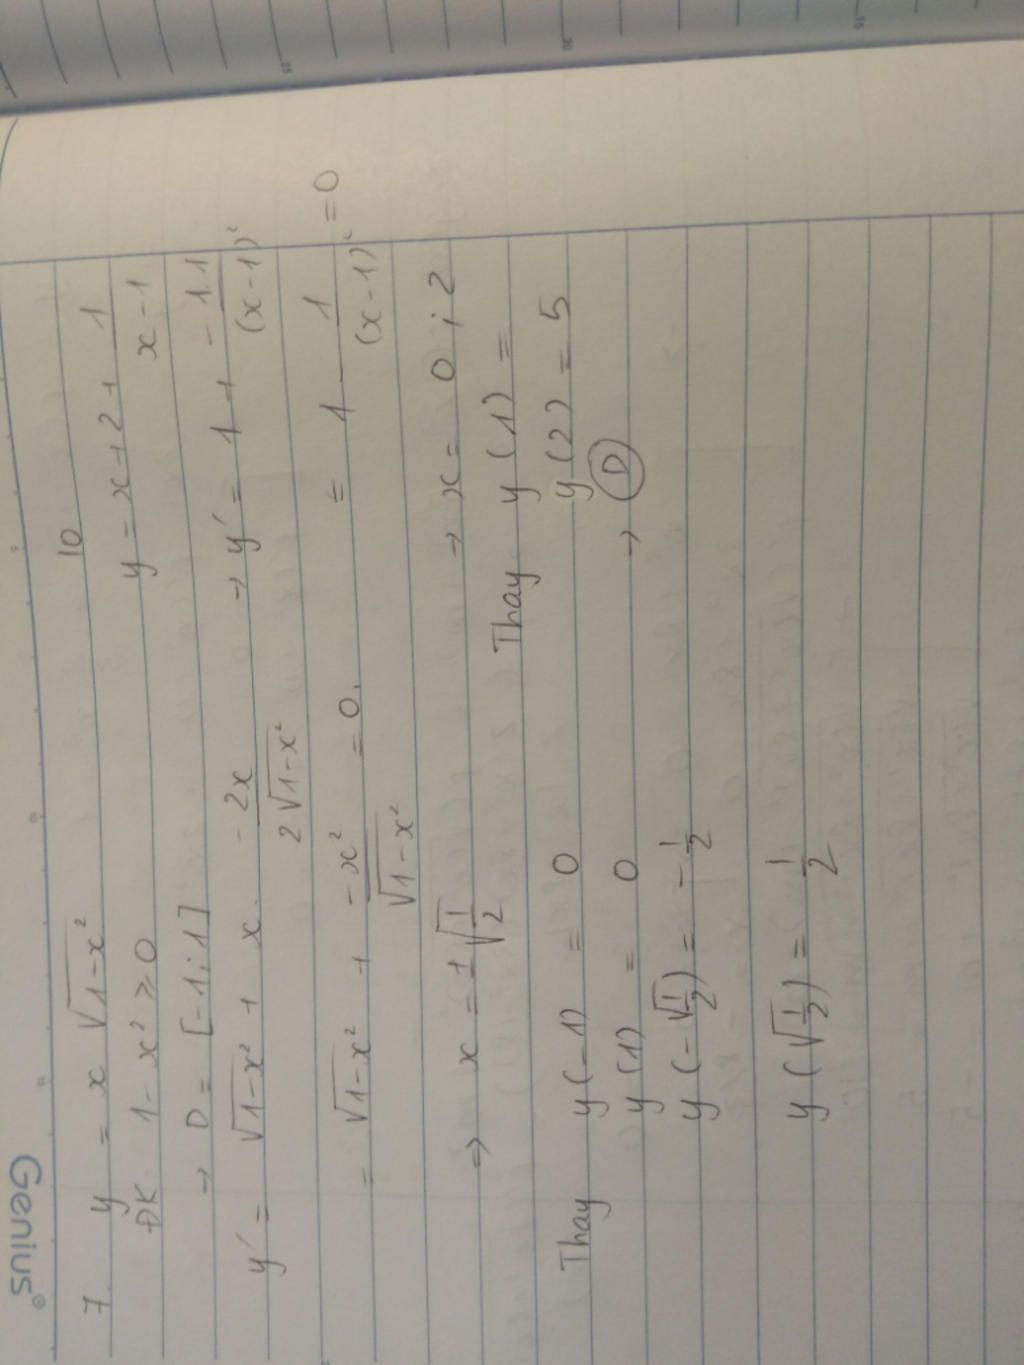 Genius
7. y = x √(1-x²)
ĐK 1 - x² ≥ 0
→ D = [-1;1]
y' = √(1-x²) + x. -2x / 2√(1-x²)
= √(1-x²) + -x² / √(1-x²) = 0.
⇒ x = ± √(1/2)
Thay y(-1) = 0
y(1) = 0
y(-√(1/2)) = -1/2
y(√(1/2)) = 1/2
10
y = x+2 + 1 / x-1
→ y' = 1 + -1.1 / (x-1)²
= 1 - 1 / (x-1)² = 0
→ x = 0 ; 2
Thay y(1) =
y(2) = 5
→ D